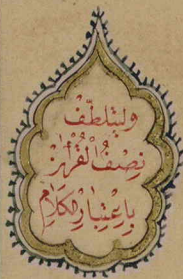 وليتلطّف
نِصْفُ الْقُرْاٰنِ
بِاعْتِبَارِ الكَلَامِ